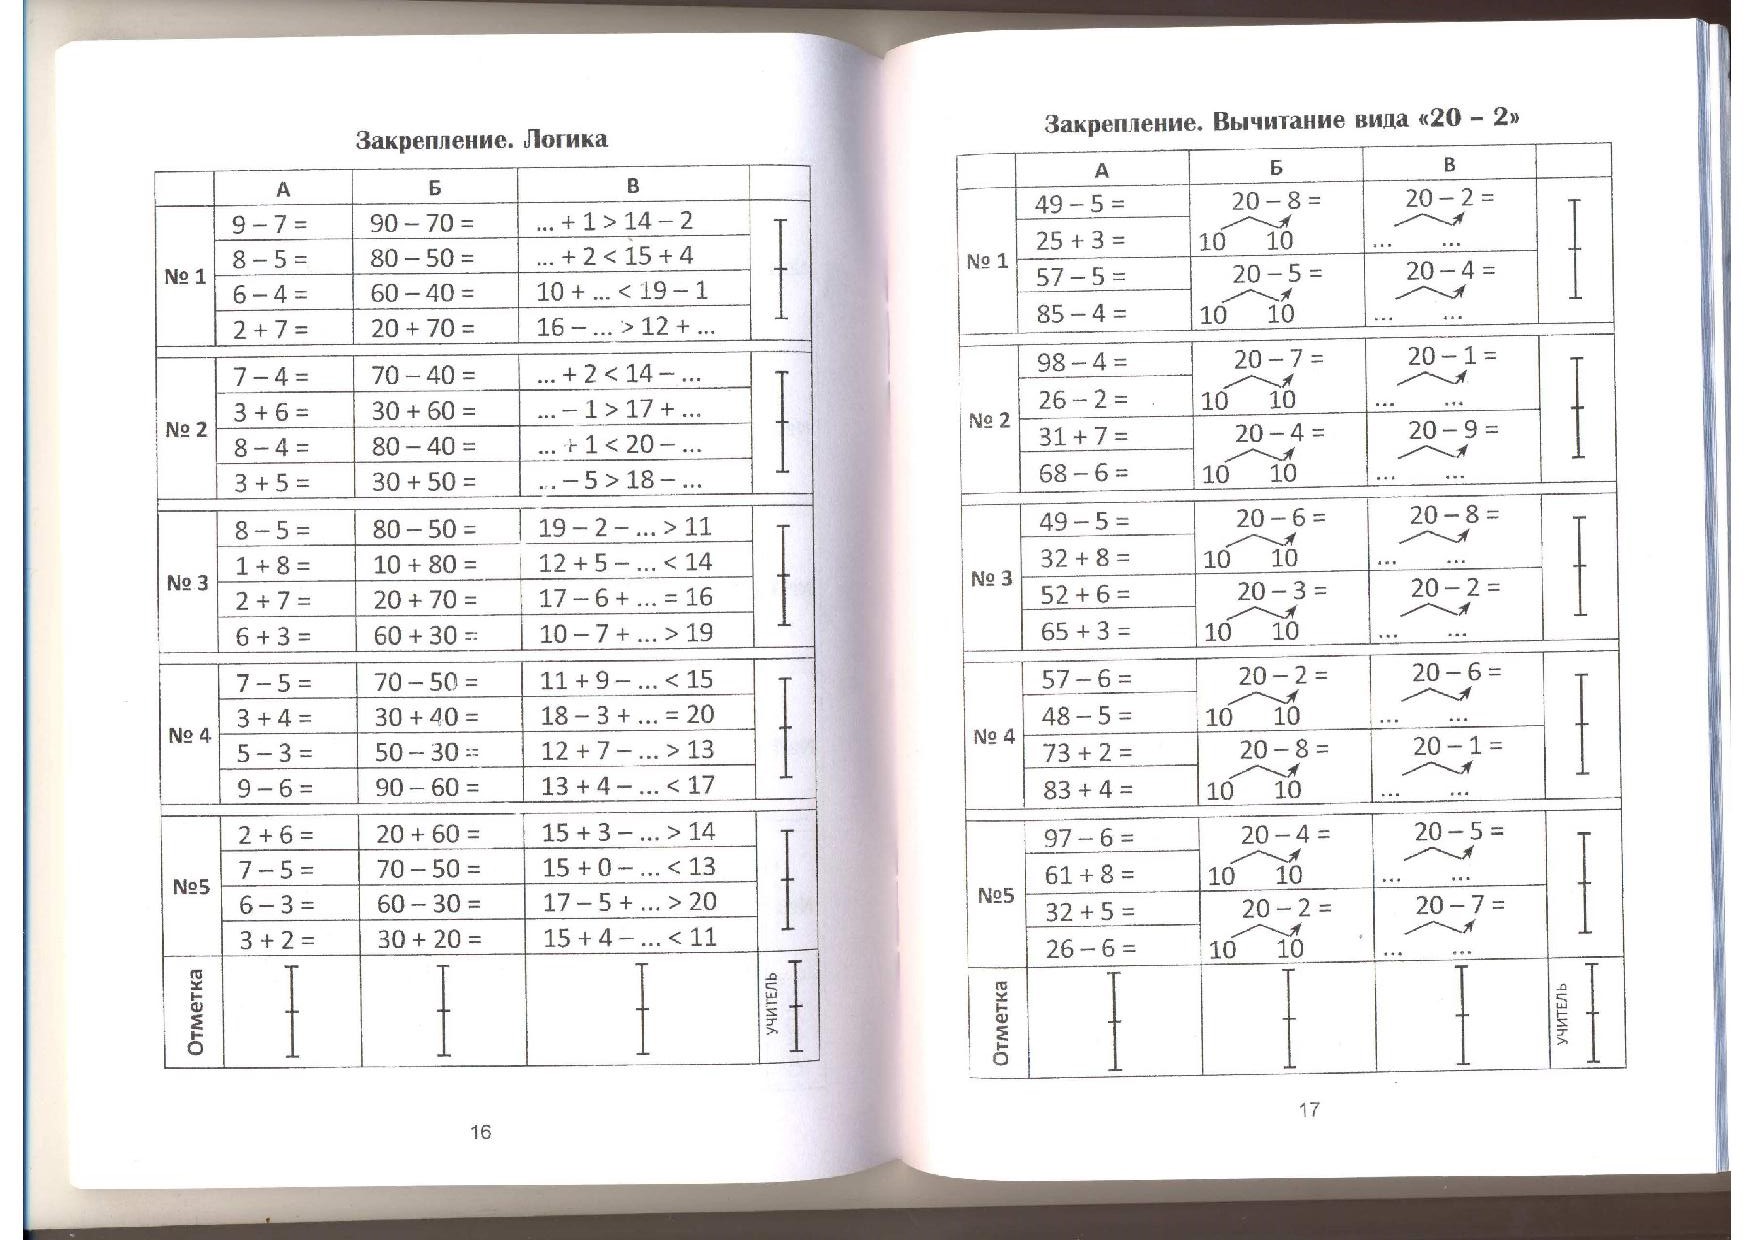 Закрепление. Логика
А Б В
№ 1
9 – 7 = 90 – 70 = ... + 1 > 14 – 2
8 – 5 = 80 – 50 = ... + 2 < 15 + 4
6 – 4 = 60 – 40 = 10 + ... < 19 – 1
2 + 7 = 20 + 70 = 16 – ... > 12 + ...
№ 2
7 – 4 = 70 – 40 = ... + 2 < 14 – ...
3 + 6 = 30 + 60 = ... – 1 > 17 + ...
8 – 4 = 80 – 40 = ... + 1 < 20 – ...
3 + 5 = 30 + 50 = ... – 5 > 18 – ...
№ 3
8 – 5 = 80 – 50 = 19 – 2 – ... > 11
1 + 8 = 10 + 80 = 12 + 5 – ... < 14
2 + 7 = 20 + 70 = 17 – 6 + ... = 16
6 + 3 = 60 + 30 = 10 – 7 + ... > 19
№ 4
7 – 5 = 70 – 50 = 11 + 9 – ... < 15
3 + 4 = 30 + 40 = 18 – 3 + ... = 20
5 – 3 = 50 – 30 = 12 + 7 – ... > 13
9 – 6 = 90 – 60 = 13 + 4 – ... < 17
№5
2 + 6 = 20 + 60 = 15 + 3 – ... > 14
7 – 5 = 70 – 50 = 15 + 0 – ... < 13
6 – 3 = 60 – 30 = 17 – 5 + ... > 20
3 + 2 = 30 + 20 = 15 + 4 – ... < 11
Отметка
УЧИТЕЛЬ
16
Закрепление. Вычитание вида «20 – 2»
А Б В
№ 1
49 – 5 = 20 – 8 = 20 – 2 =
25 + 3 = 10 10 ... ...
57 – 5 = 20 – 5 = 20 – 4 =
85 – 4 = 10 10 ... ...
№ 2
98 – 4 = 20 – 7 = 20 – 1 =
26 – 2 = 10 10 ... ...
31 + 7 = 20 – 4 = 20 – 9 =
68 – 6 = 10 10 ... ...
№ 3
49 – 5 = 20 – 6 = 20 – 8 =
32 + 8 = 10 10 ... ...
52 + 6 = 20 – 3 = 20 – 2 =
65 + 3 = 10 10 ... ...
№ 4
57 – 6 = 20 – 2 = 20 – 6 =
48 – 5 = 10 10 ... ...
73 + 2 = 20 – 8 = 20 – 1 =
83 + 4 = 10 10 ... ...
№5
97 – 6 = 20 – 4 = 20 – 5 =
61 + 8 = 10 10 ... ...
32 + 5 = 20 – 2 = 20 – 7 =
26 – 6 = 10 10 ... ...
Отметка
УЧИТЕЛЬ
17